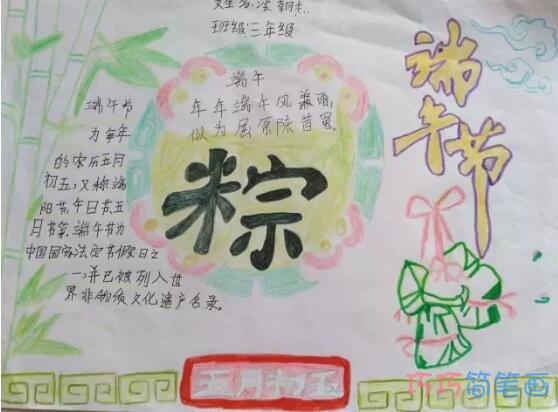 姓名:凌朝杰
班级:三年级
端午
年年端午风兼雨,
似为屈原陈昔冤。
端午节
为每年
的农历五月
初五,又称端
阳节,午日节,五
月节等,端午节为
中国国家法定节假日之
一,并已被列入世
界非物质文化遗产名录。
粽
端午节
五月初五
巧巧简笔画